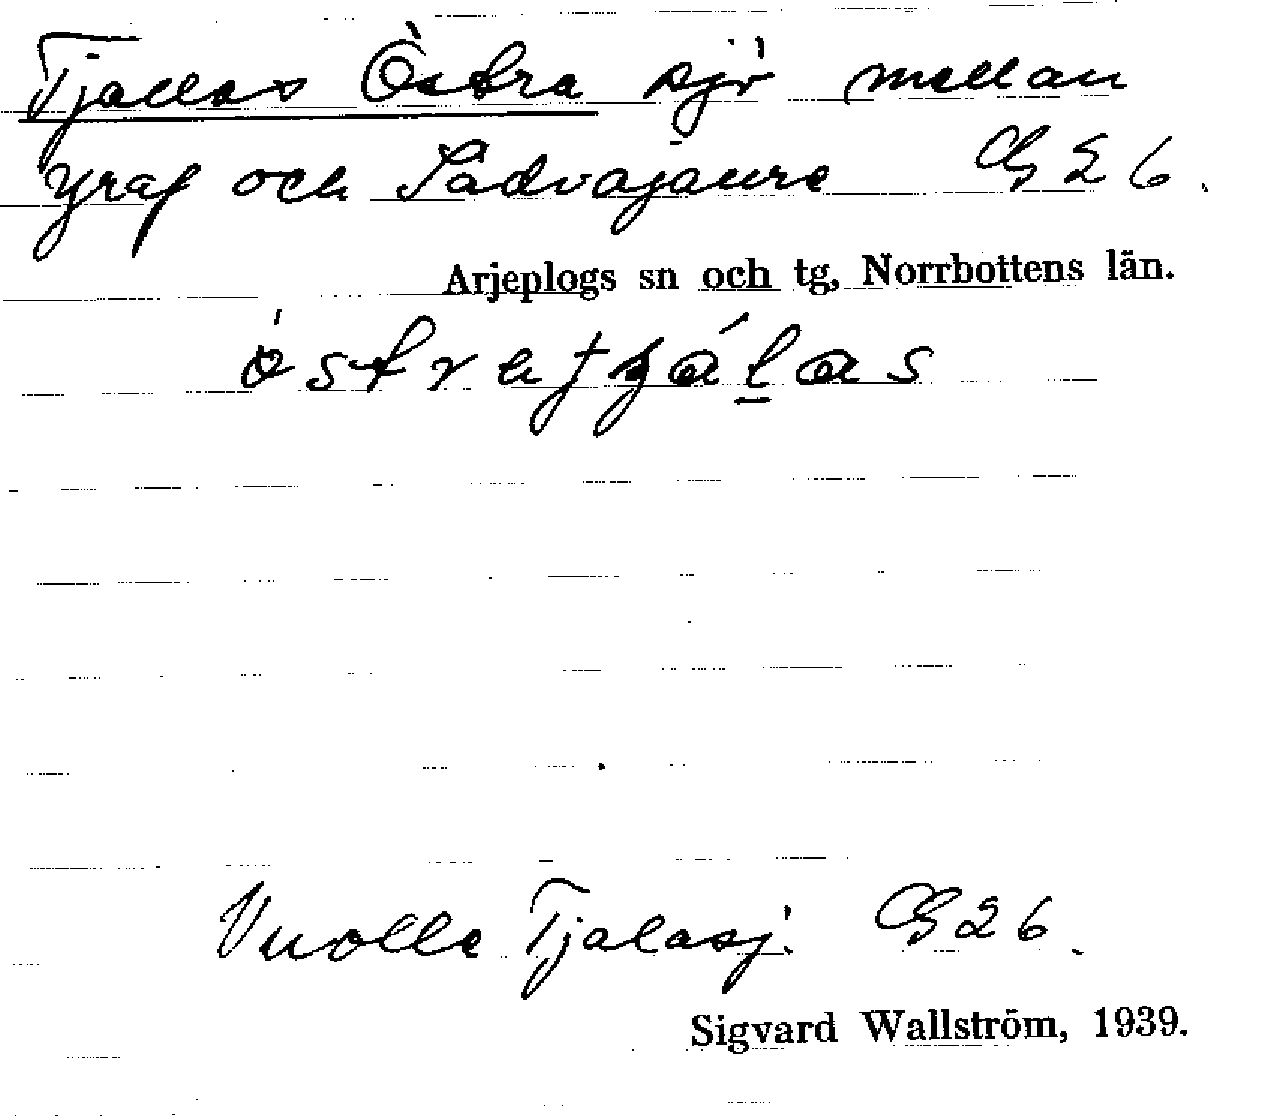 Tjallas Östra sjö mellan
Yraf och Sädvajaure G 26.
Arjeplogs sn och tg, Norrbottens län.
Vuolle Tjalasj. G 26.
Sigvard Wallström, 1939.